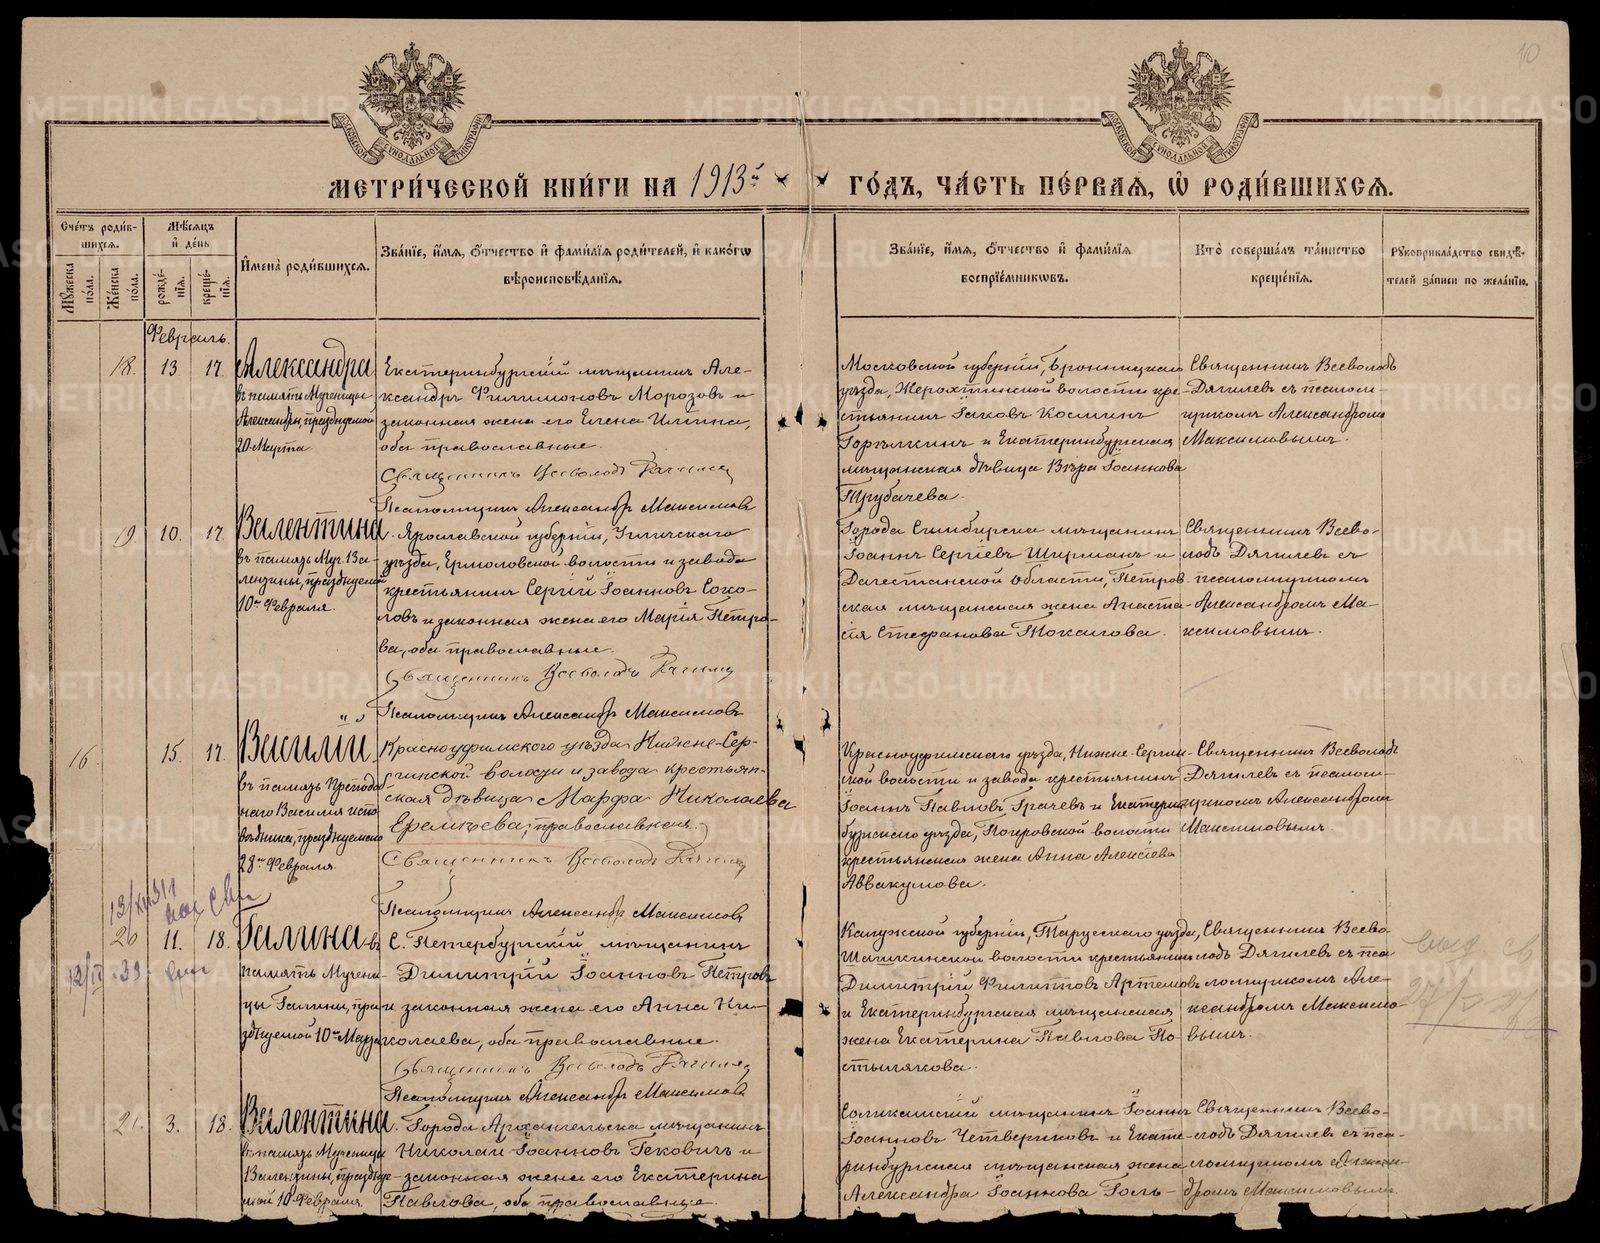 10
МОСКОВСКОЙ СѴНОДАЛЬНОЙ ТИПОГРАФИИ
МОСКОВСКОЙ СѴНОДАЛЬНОЙ ТИПОГРАФИИ
МЕТРИ́ЧЕСКОЙ КНИ́ГИ НА 1913й ГО́ДЪ, ЧА́СТЬ ПЕ́РВАЯ, Ѡ҆ РОДИ́ВШИХСЯ.
Сче́тъ роди́в-
шихся.
Мѣ́сяцъ
и҆ де́нь
Мꙋ́жеска по́ла.
Же́нска по́ла.
рожде́-нїя.
креще́-нїя.
И҆мена̀ роди́вшихся.
Зва́нїе, и҆́мя, ѻ҆́тчество и҆ фами́лїя роди́телей, и҆ како́гѡ
вѣроисповѣ́данїя.
Зва́нїе, и҆́мя, ѻ҆́тчество и҆ фами́лїя
воспрїе́мникѡвъ.
Кто̀ соверша́лъ та́инство
креще́нїя.
Рꙋкоприкла́дство свидѣ́-
телей за́писи по жела́нїю.
Февраль.
18. 13 17. Александра
въ память Мученицы
Александры, празднуемой
20 Марта
Екатеринбургскій мѣщанинъ Але-
ксандръ Филимоновъ Морозовъ и
законная жена его Елена Ильина,
оба православные.
Священникъ Всеволодъ Дягилевъ
Псаломщикъ Александръ Максимовъ
Московской губерніи, Бронницкаго
уѣзда, Жерохтинской волости кре-
стьянинъ Іаковъ Косминъ
Горѣлкинъ и Екатеринбургская
мѣщанская дѣвица Вѣра Іоаннова
Трубачева.
Священникъ Всеволодъ
Дягилевъ съ псалом-
щикомъ Александромъ
Максимовымъ.
19 10. 17. Валентина.
въ память Муч. Ва-
лентины, празднуемой
10го Февраля.
Ярославской губерніи, Угличскаго
уѣзда, Ермоловской волости и завода
крестьянинъ Сергій Іоанновъ Соко-
ловъ и законная жена его Марія Петро-
ва, оба православные.
Священникъ Всеволодъ Дягилевъ
Псаломщикъ Александръ Максимовъ
Города Симбирска мѣщанинъ
Іоаннъ Сергіевъ Ширманъ и
Дагестанской области, Петров-
ская мѣщанская жена Анаста-
сія Стефанова Токагова.
Священникъ Всево-
лодъ Дягилевъ съ
псаломщикомъ
Александромъ Ма-
ксимовымъ.
16 15. 17. Василій
въ память Преподоб-
наго Василія испо-
вѣдника, празднуемаго
28го Февраля.
Красноуфимскаго уѣзда Нижне-Сер-
гинской волости и завода крестьян-
ская дѣвица Марфа Николаева
Еремѣева, православная.
Священникъ Всеволодъ Дягилевъ
Псаломщикъ Александръ Максимовъ
Красноуфимскаго уѣзда, Нижне-Сергин-
ской волости и завода крестьянинъ
Іоаннъ Павловъ Грачевъ и Екатерин-
бургскаго уѣзда, Покровской волости
крестьянская жена Анна Алексіева
Аввакумова.
Священникъ Всеволодъ
Дягилевъ съ псалом-
щикомъ Александромъ
Максимовымъ.
20 11. 18. Галина въ
память Мучени-
цы Галины, пра-
зднуемой 10го Марта
С. Петербургскій мѣщанинъ
Димитрій Іоанновъ Петровъ
и законная жена его Анна Ни-
колаева, оба православные.
Священникъ Всеволодъ Дягилевъ
Псаломщикъ Александръ Максимовъ
Калужской губерніи, Тарусскаго уѣзда,
Шапкинской волости крестьянинъ
Димитрій Филипповъ Артемовъ
и Екатеринбургская мѣщанская
жена Екатерина Павлова По-
стылякова.
Священникъ Всево-
лодъ Дягилевъ съ пса-
ломщикомъ Але-
ксандромъ Максимо-
вымъ.
21. 3. 18. Валентина.
въ память Мученицы
Валентины, праздну-
емой 10 Февраля.
Города Архангельска мѣщанинъ
Николай Іоанновъ Гековичъ и
законная жена его Екатерина
Павлова, оба православные.
Соликамскій мѣщанинъ Іоаннъ
Іоанновъ Четвериковъ и Екате-
ринбургская мѣщанская жена
Александра Іоаннова Голь-
Священникъ Всево-
лодъ Дягилевъ съ пса-
ломщикомъ Алексан-
дромъ Максимовымъ
METRIKI.GASO-URAL.RU